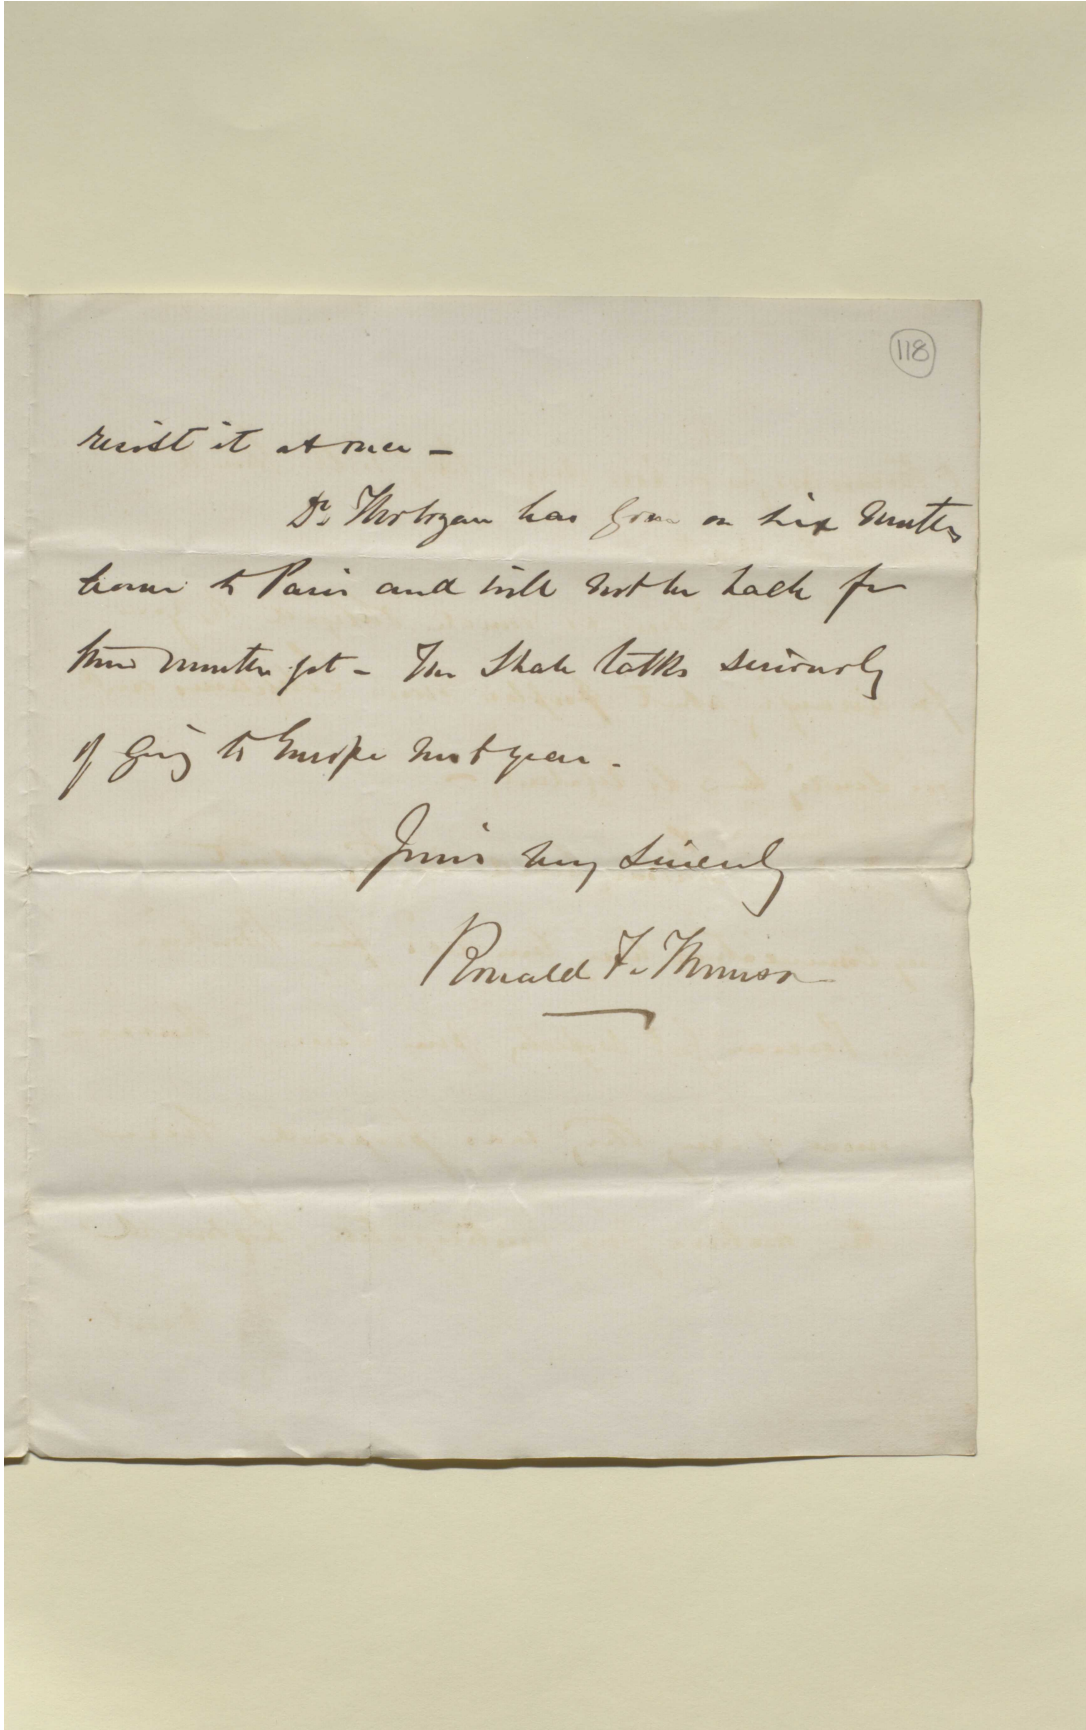 118
resist it at once –
Dr. Tholozan has gone on six months
leave to Paris and will not be back for
three months yet – The Shah talks seriously
of going to Europe next year.
Yours very sincerely
Ronald F. Thomson